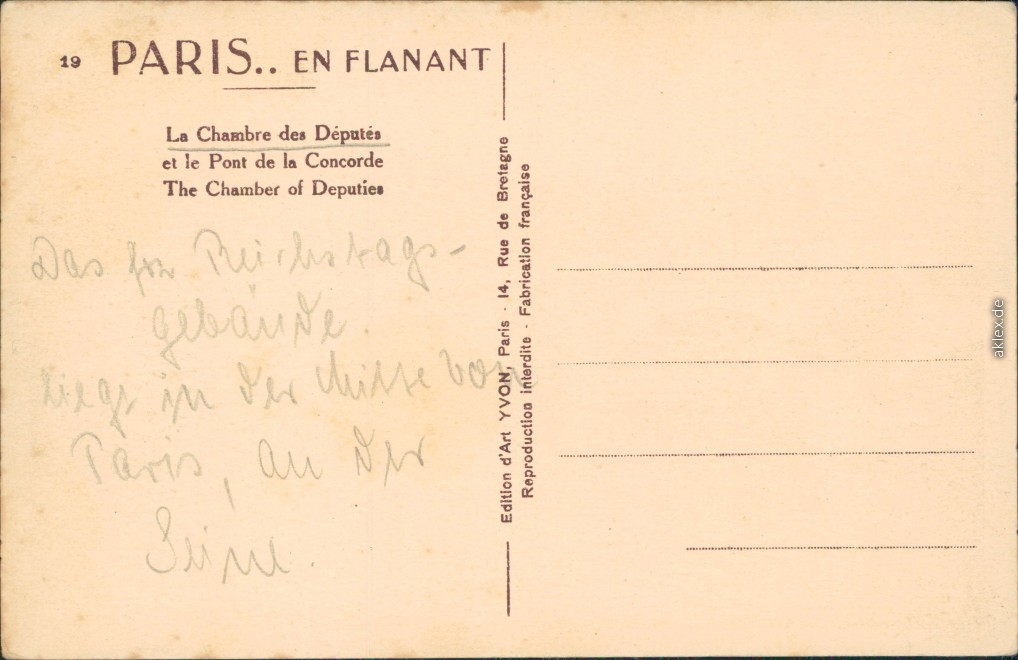 19 PARIS.. EN FLANANT
La Chambre des Députés
et le Pont de la Concorde
The Chamber of Deputies
Das frz Reichstags-
gebäude
liegt in der Mitte vom
Paris, an der
Seine.
Edition d'Art YVON, Paris - 14, Rue de Bretagne
Reproduction interdite - Fabrication française
aklex.de